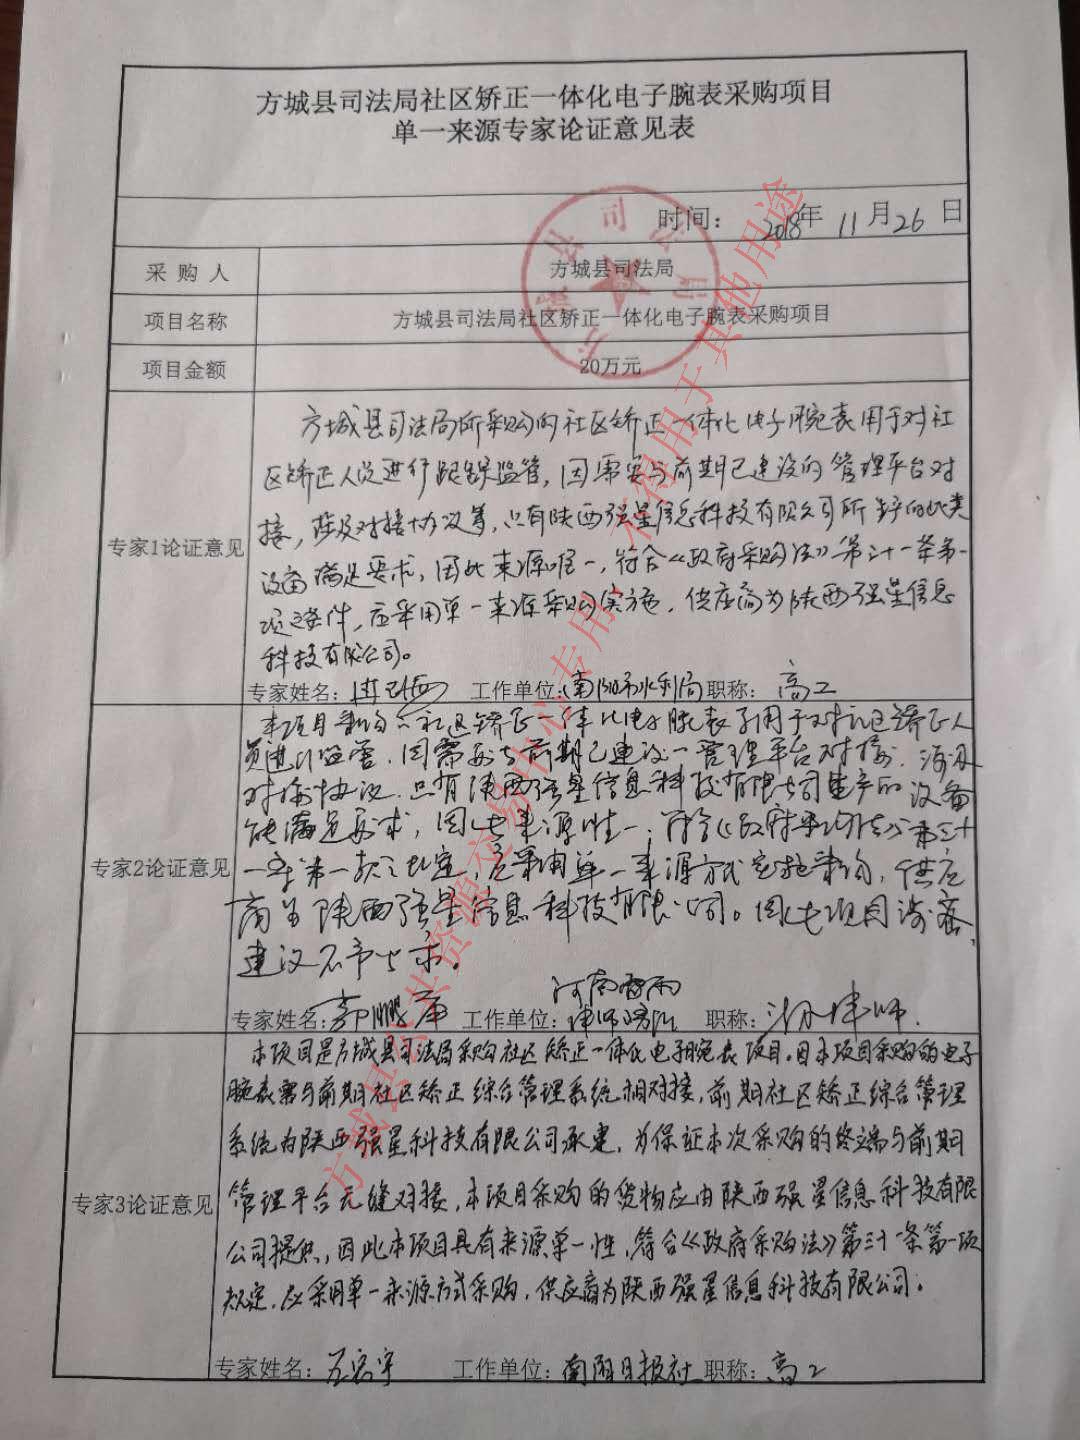 方城县司法局社区矫正一体化电子腕表采购项目
单一来源专家论证意见表
时间： 2018年 11月26日
采购人 方城县司法局
项目名称 方城县司法局社区矫正一体化电子腕表采购项目
项目金额 20万元
方城县司法局所采购的社区矫正一体化电子腕表用于对社
区矫正人员进行跟踪监管，因需要与前期已建设的管理平台对
接，涉及对接协议等，只有陕西强星信息科技有限公司所生产的此类
专家1论证意见
设备满足要求，因此来源唯一，符合《政府采购法》第三十一条第一
项之条件，应采用单一来源采购实施，供应商为陕西强星信息
科技有限公司。
专家姓名： 工作单位：南阳市水利局 职称：高工
本项目采购的社区矫正一体化电子腕表用于对社区矫正人
员进行监管，因需要与前期已建设管理平台对接，涉及
对接协议，只有陕西强星信息科技有限公司生产的设备
能满足要求，因此来源唯一，符合《政府采购法》第三十
专家2论证意见
一条第一款之规定，应采用单一来源方式实施采购，供应
商为陕西强星信息科技有限公司。因此项目涉密，
建议不予公示。
河南
专家姓名： 工作单位：律师 职称：律师
本项目是方城县司法局采购社区矫正一体化电子腕表项目。因本项目采购的电子
腕表需与前期社区矫正综合管理系统相对接，前期社区矫正综合管理
系统为陕西强星科技有限公司承建，为保证本次采购的终端与前期
管理平台无缝对接，本项目采购的货物应由陕西强星信息科技有限
专家3论证意见
公司提供，因此本项目具有来源单一性，符合《政府采购法》第三十一条第一项
规定，应采用单一来源方式采购，供应商为陕西强星信息科技有限公司。
专家姓名： 工作单位：南阳日报社 职称：高工
方城县公共资源交易中心专用，不得用于其他用途